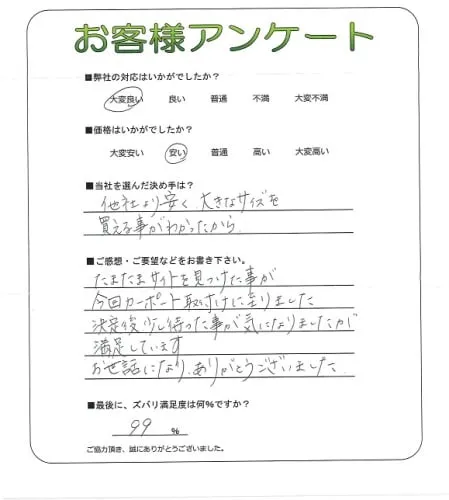 お客様アンケート
■弊社の対応はいかがでしたか？
大変良い 良い 普通 不満 大変不満
■価格はいかがでしたか？
大変安い 安い 普通 高い 大変高い
■当社を選んだ決め手は？
他社より安く 大きなサイズを
買える事がわかったから
■ご感想・ご要望などをお書き下さい。
たまたまサイトを見つけた事が
今回カーポート取付けに至りました
決定後少し待った事が気になりましたが
満足しています
お世話になり、ありがとうございました
■最後に、ズバリ満足度は何%ですか？
99 %
ご協力頂き、誠にありがとうございました。